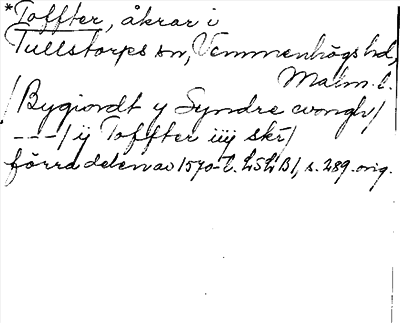 *Toffter, åkrar i
Tullstorps sn, Vemmenhögs hd,
Malm. l.
/Bygiordt y Syndre wongh/
---/ ij Toffter iiij skr/
förra delen av 1570-t. LSLB1, s. 289. orig.